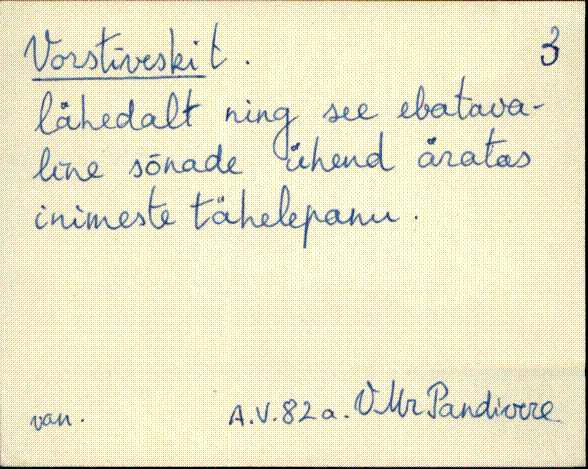 Vorstiveski t. 3
lähedalt ning see ebatava-
line sõnade ühend äratas
inimeste tähelepanu.
van. A.V.82a. VMr Pandivere